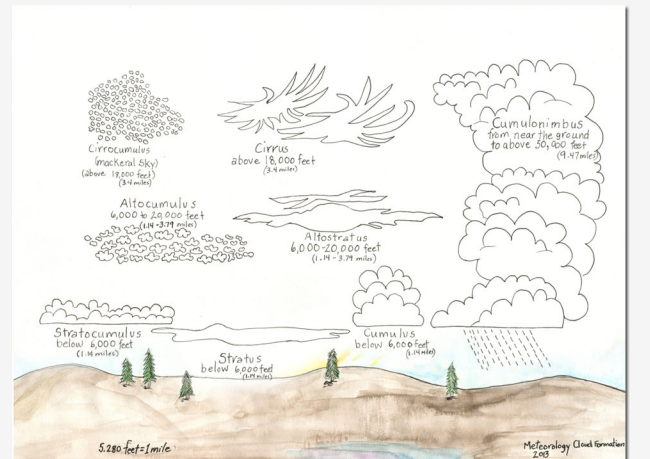 Cirrocumulus
(mackeral sky)
(above 18,000 feet)
(3.4 miles)
Cirrus
above 18,000 feet
(3.4 miles)
Cumulonimbus
from near the ground
to above 50,000 feet
(9.47 miles)
Altocumulus
6,000 to 20,000 feet
(1.14-3.79 miles)
Altostratus
6,000-20,000 feet
(1.14-3.79 miles)
Stratocumulus
below 6,000 feet
(1.14 miles)
Stratus
below 6,000 feet
(1.14 miles)
Cumulus
below 6,000 feet
(1.14 miles)
5,280 feet=1 mile
Meteorology Cloud Formation
2013